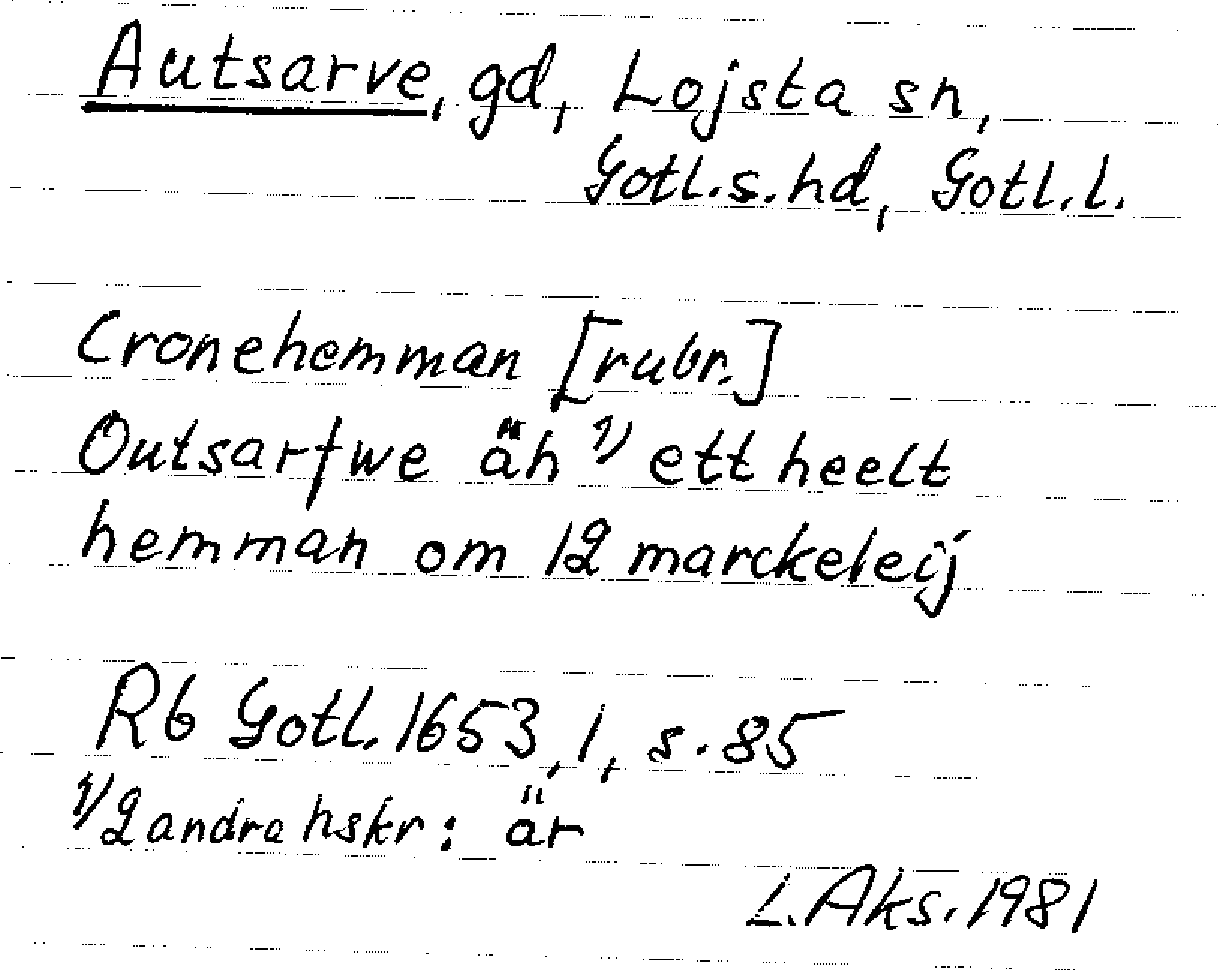 Autsarve, gd, Lojsta sn,
Gotl.s.hd, Gotl.l.
Cronehemman [rubr.]
Outsarfwe äh 1) ett heelt
hemman om 12 marckeleij
Rb Gotl. 1653, 1, s. 85
1) 2 andra hskr: är
L. Aks. 1981